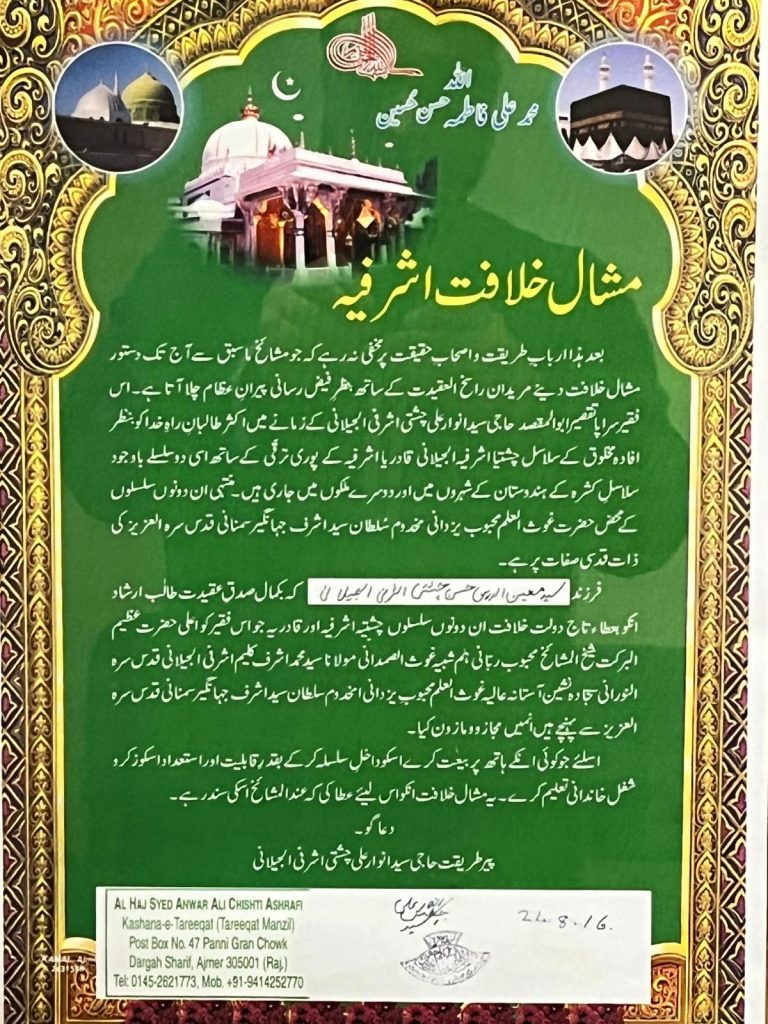 اللہ
محمد علی فاطمہ حسن حسین
مثال خلافت اشرفیہ
بعد ہذا ارباب طریقت و اصحاب حقیقت پر مخفی نہ رہے کہ جو مشائخ ماسبق سے آج تک دستور
مثال خلافت دینے مریدان راسخ العقیدت کے ساتھ بنظر فیض رسانی پیران عظام چلا آتا ہے۔ اس
فقیر سراپا تقصیر ابوالمقصد حاجی سید انوار علی چشتی اشرفی الجیلانی کے زمانے میں اکثر طالبان راہ خدا کو بنظر
افادہ مخلوق کے سلاسل چشتیا اشرفیہ الجیلانی قادریا اشرفیہ کے پوری ترقّی کے ساتھ اسی دو سلسلے باوجود
سلاسل کشرہ کے ہندوستان کے شہروں میں اور دوسرے ملکوں میں جاری ہیں۔ منتہی ان دونوں سلسلوں
کے محض حضرت غوث العلم محبوب یزدانی مخدوم سُلطان سید اشرف جہانگیر سمنانی قدس سرہ العزیز کی
ذات قدسی صفات پر ہے۔
فرزند سید معین الدین حسن چشتی اشرفی الجیلانی کہ بکمال صدق عقیدت طالب ارشاد
انکو بعطاء تاج دولت خلافت ان دونوں سلسلوں چشتیہ اشرفیہ اور قادریہ جو اس فقیر کو اعلی حضرت عظیم
البرکت شیخ المشائخ محبوب ربّانی ہم شبیہ غوث الصمدانی مولانا سید محمد اشرف کلیم اشرفی الجیلانی قدس سرہ
النورانی سجادہ نشین آستانہ عالیہ غوث العلم محبوب یزدانی مخدوم سلطان سید اشرف جہانگیر سمنانی قدس سرہ
العزیز سے پہنچے ہیں انہیں مجاز و ماذون کیا۔
اسلئے جو کوئی انکے ہاتھ پر بیعت کرے اسکو داخل سلسلہ کر کے بقدر قابلیت اور استعداد اسکو ذکر و
شغل خاندانی تعلیم کرے۔ یہ مثال خلافت انکو اس لیئے عطا کی کہ عند المشائخ اسکی سند رہے۔
دعا گو۔
پیر طریقت حاجی سید انوار علی چشتی اشرفی الجیلانی
AL HAJ SYED ANWAR ALI CHISHTI ASHRAFI
Kashana-e-Tareeqat (Tareeqat Manzil)
Post Box No. 47 Panni Gran Chowk
Dargah Sharif, Ajmer 305001 (Raj.)
Tel: 0145-2621773, Mob. +91-9414252770